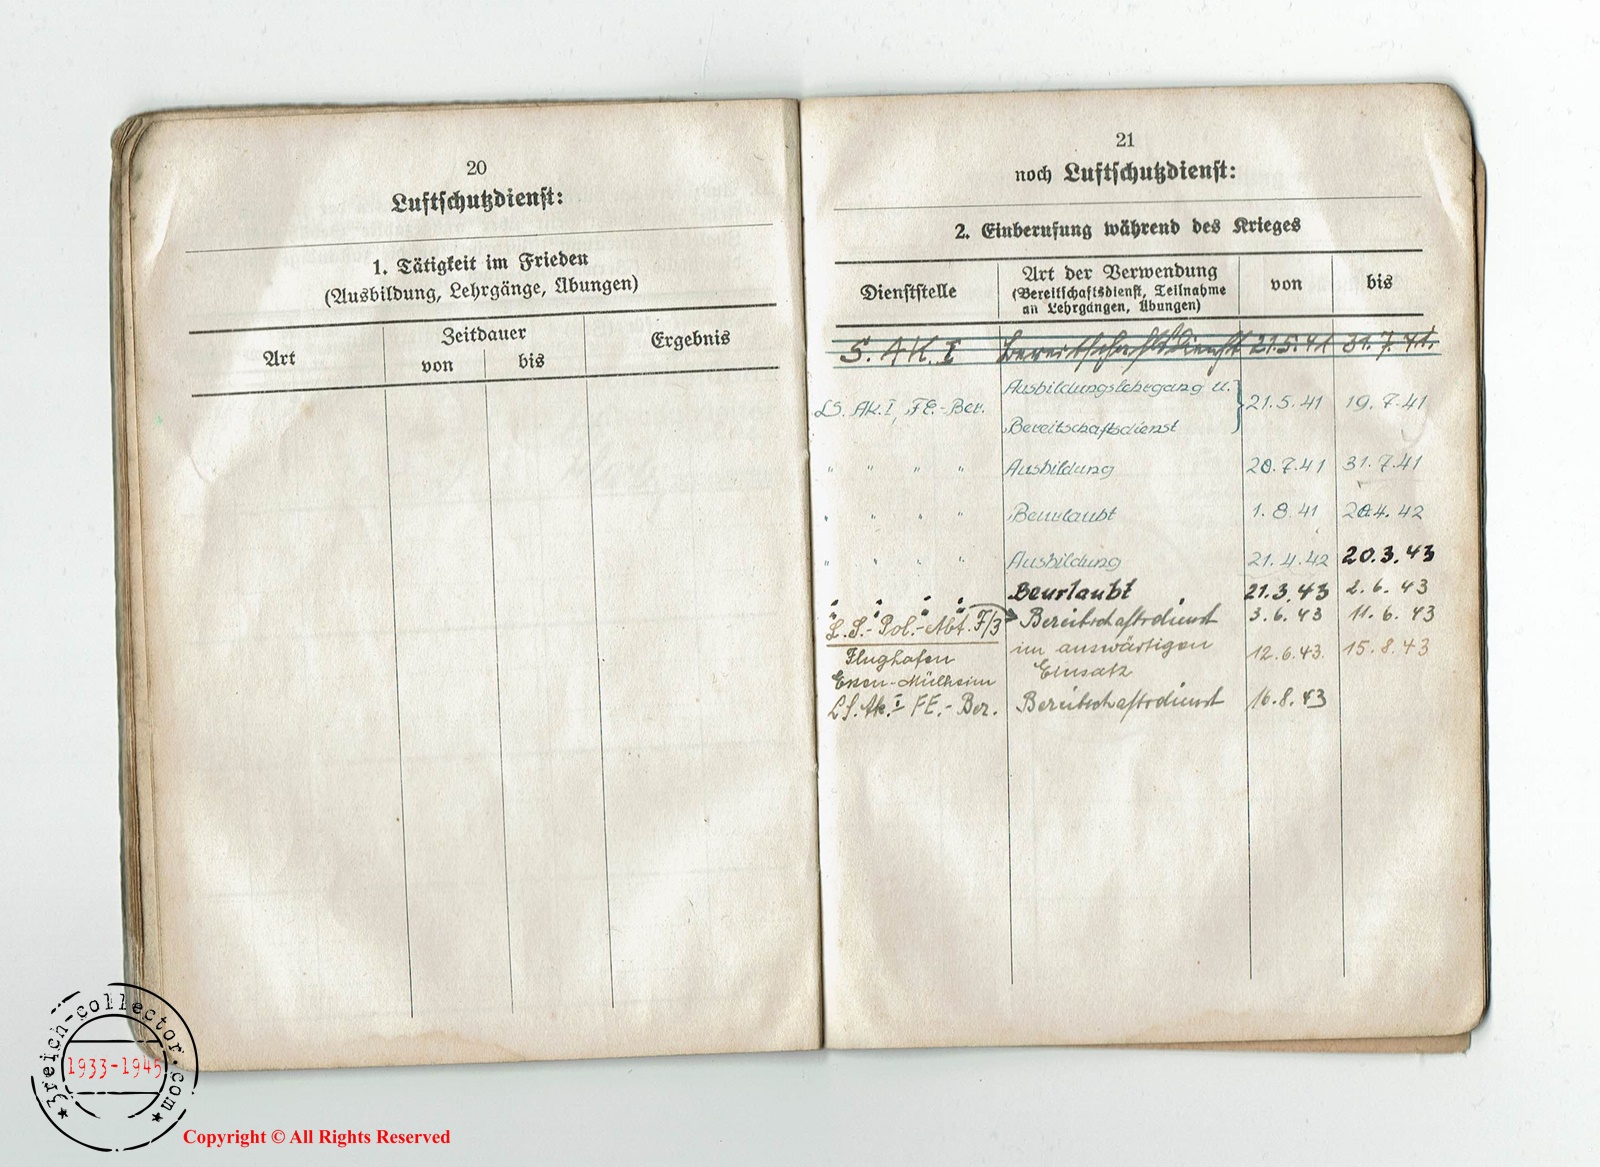 20
Luftschutzdienst:
1. Tätigkeit im Frieden
(Ausbildung, Lehrgänge, Übungen)
Art Zeitdauer Ergebnis
von bis
21
noch Luftschutzdienst:
2. Einberufung während des Krieges
Dienststelle Art der Verwendung von bis
(Bereitschaftsdienst, Teilnahme
an Lehrgängen, Übungen)
S. AK. I Bereitschaftsdienst 21.5.41 31.7.41.
Ausbildungslehrgang u.
LS. Ak. I, FE.-Ber. } 21.5.41 19.7.41
Bereitschaftsdienst
" " " " Ausbildung 20.7.41 31.7.41
" " " " Beurlaubt 1.8.41 20.4.42
" " " " Ausbildung 21.4.42 20.3.43
" " " " Beurlaubt 21.3.43 2.6.43
" " " " Bereitschaftsdienst 3.6.43 11.6.43
L.S.-Pol.-Abt. F/3 im auswärtigen 12.6.43. 15.8.43
Flughafen Einsatz
Essen-Mülheim
LS. Ak. I FE.-Ber. Bereitschaftsdienst 16.8.43
3reich-collector.com
1933-1945
Copyright © All Rights Reserved